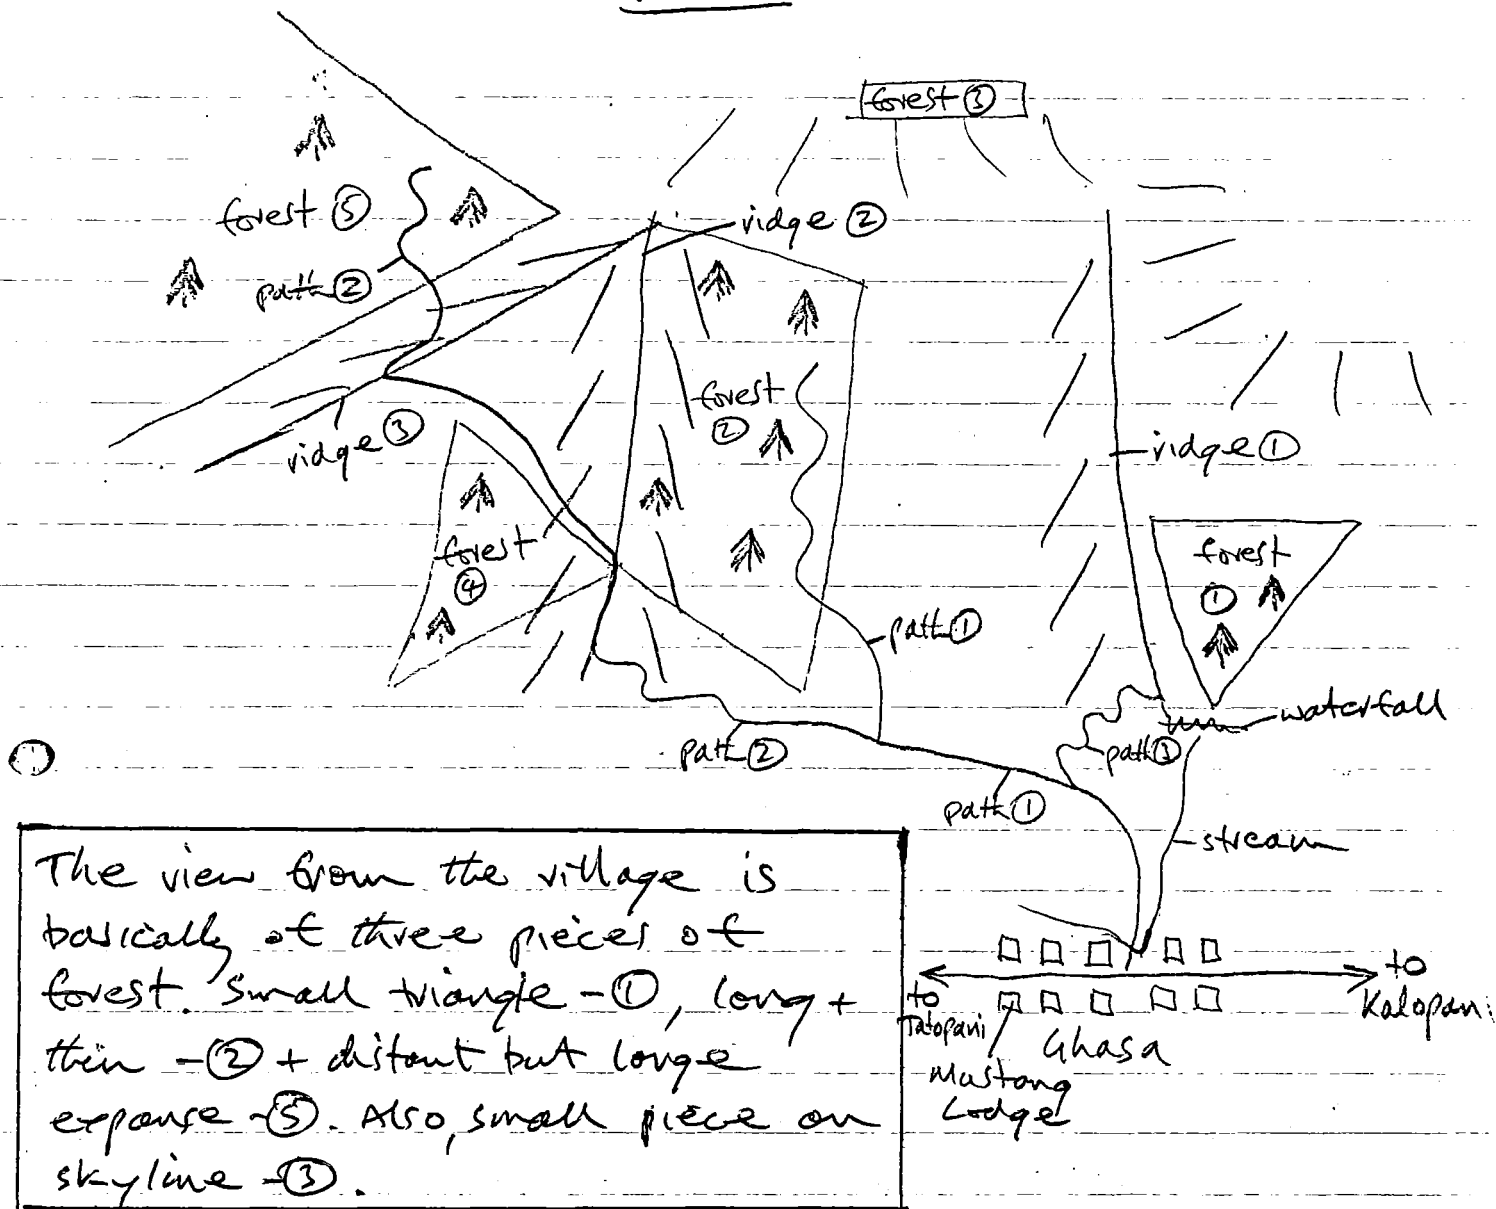 forest ③
forest ⑤
ridge ②
path ②
forest
②
ridge ③
ridge ①
forest
④
forest
①
path ①
waterfall
path ②
path ③
path ①
stream
①
The view from the village is
basically of three pieces of
forest. Small triangle - ①, long +
thin - ② + distant but large
expanse - ⑤. Also, small piece on
skyline - ③.
to
Tatopani
to
Kalopani
Ghasa
Mustang
Lodge